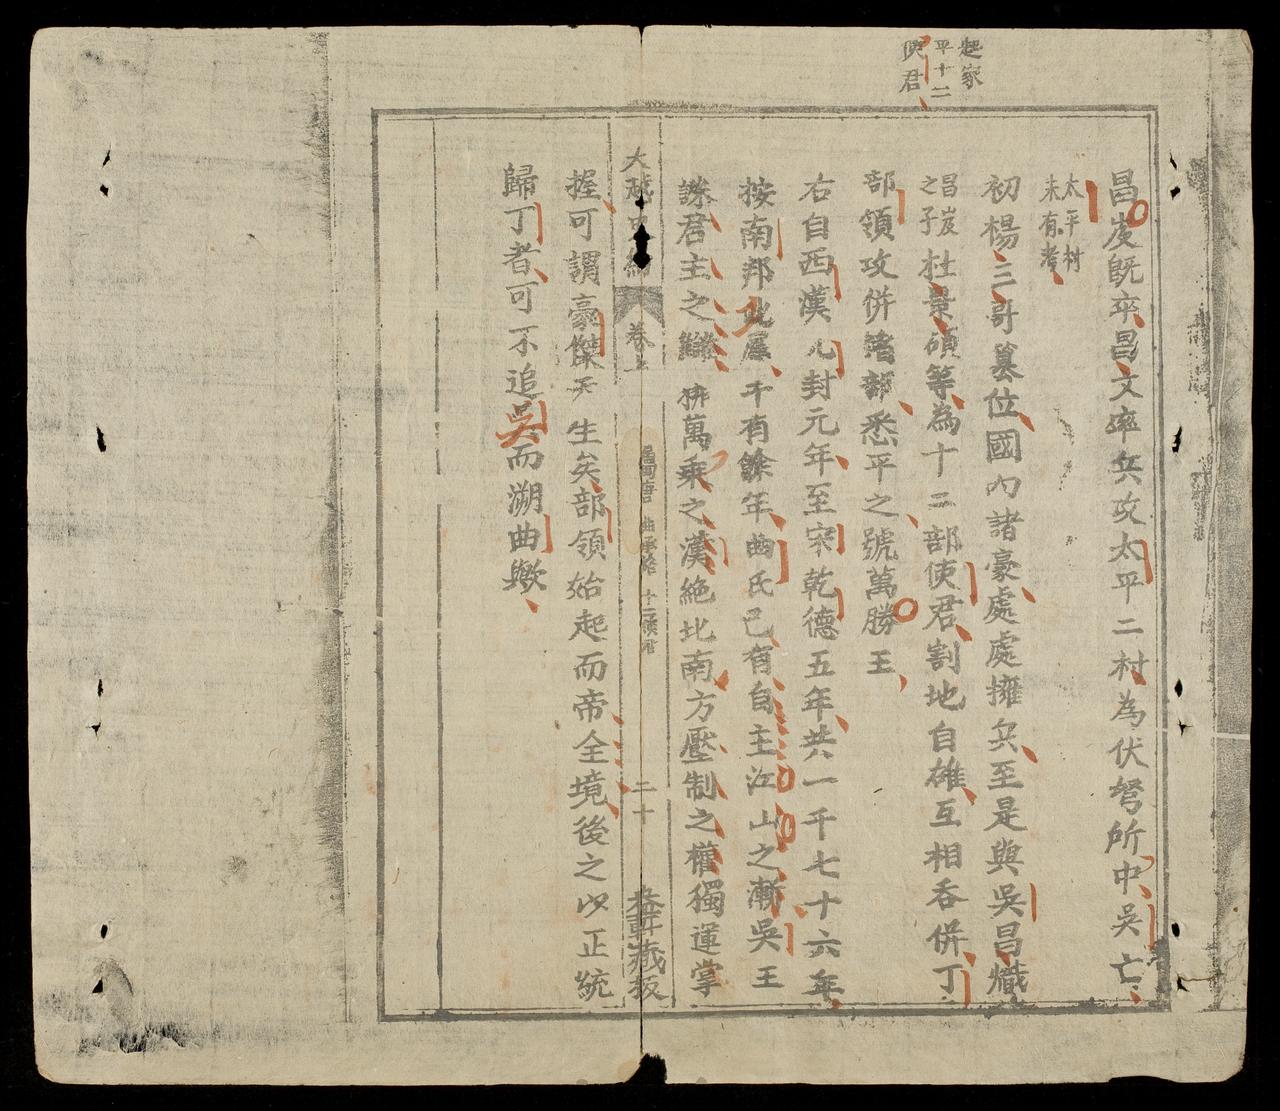 起家
平十二
使君
昌岌旣卒昌文率兵攻太平二村為伏弩所中吳亡
太平村
未有考
初楊三哥篡位國內諸豪處處擁兵至是與吳昌熾
昌岌
之子
杜景碩等為十二部使君割地自雄互相吞併丁
部領攻併諸部悉平之號萬勝王
右自西漢元封元年至宋乾德五年共一千七十六年
按南邦北屬千有餘年曲氏已有自主江山之漸吳王
誅君主之讎排萬乘之漢絶北南方壓制之權獨運掌
大越史約 卷上 屬唐 曲承美 十二使君 二十 藏板
握可謂豪傑天生矣部領始起而帝全境後之以正統
歸丁者可不追吳而溯曲歟